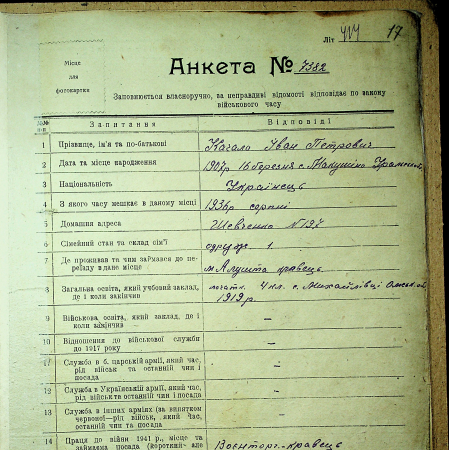 Літ 17
Місце
для
фотокартки
Анкета № 7382
Заповнюється власноручно, за неправдиві відомості відповідає по закону
військового часу
Запитання Відповіді
1 Прізвище, ім'я та по-батькові Качало Іван Петрович
2 Дата та місце народження 1907р 16 березня с.
3 Національність Українець
4 З якого часу мешкає в даному місці 1936р серпні
5 Домашня адреса Шевченко № 197
6 Сімейний стан та склад сім'ї одруж 1.
7 Де проживав та чим займався до пе-
реїзду в дане місце м Алушта кравець
8 Загальна освіта, який учбовий заклад,
де і коли закінчив початк. 4 кл. с. Михайлівці
1919 р.
9 Військова освіта, який заклад, де і
коли закінчив –
10 Відношення до військової служби
до 1917 року –
11 Служба в б. царській армії, який час,
рід військ та останній чин і
посада –
12 Служба в Українській армії, який час,
рід військ та останній чин і посада –
13 Служба в інших арміях (за винятком
червоної—рід військ, який час,
останній чин та посада –
14 Праця до війни 1941 р., місце та
займаєма посада (короткий Воєнторг-кравець